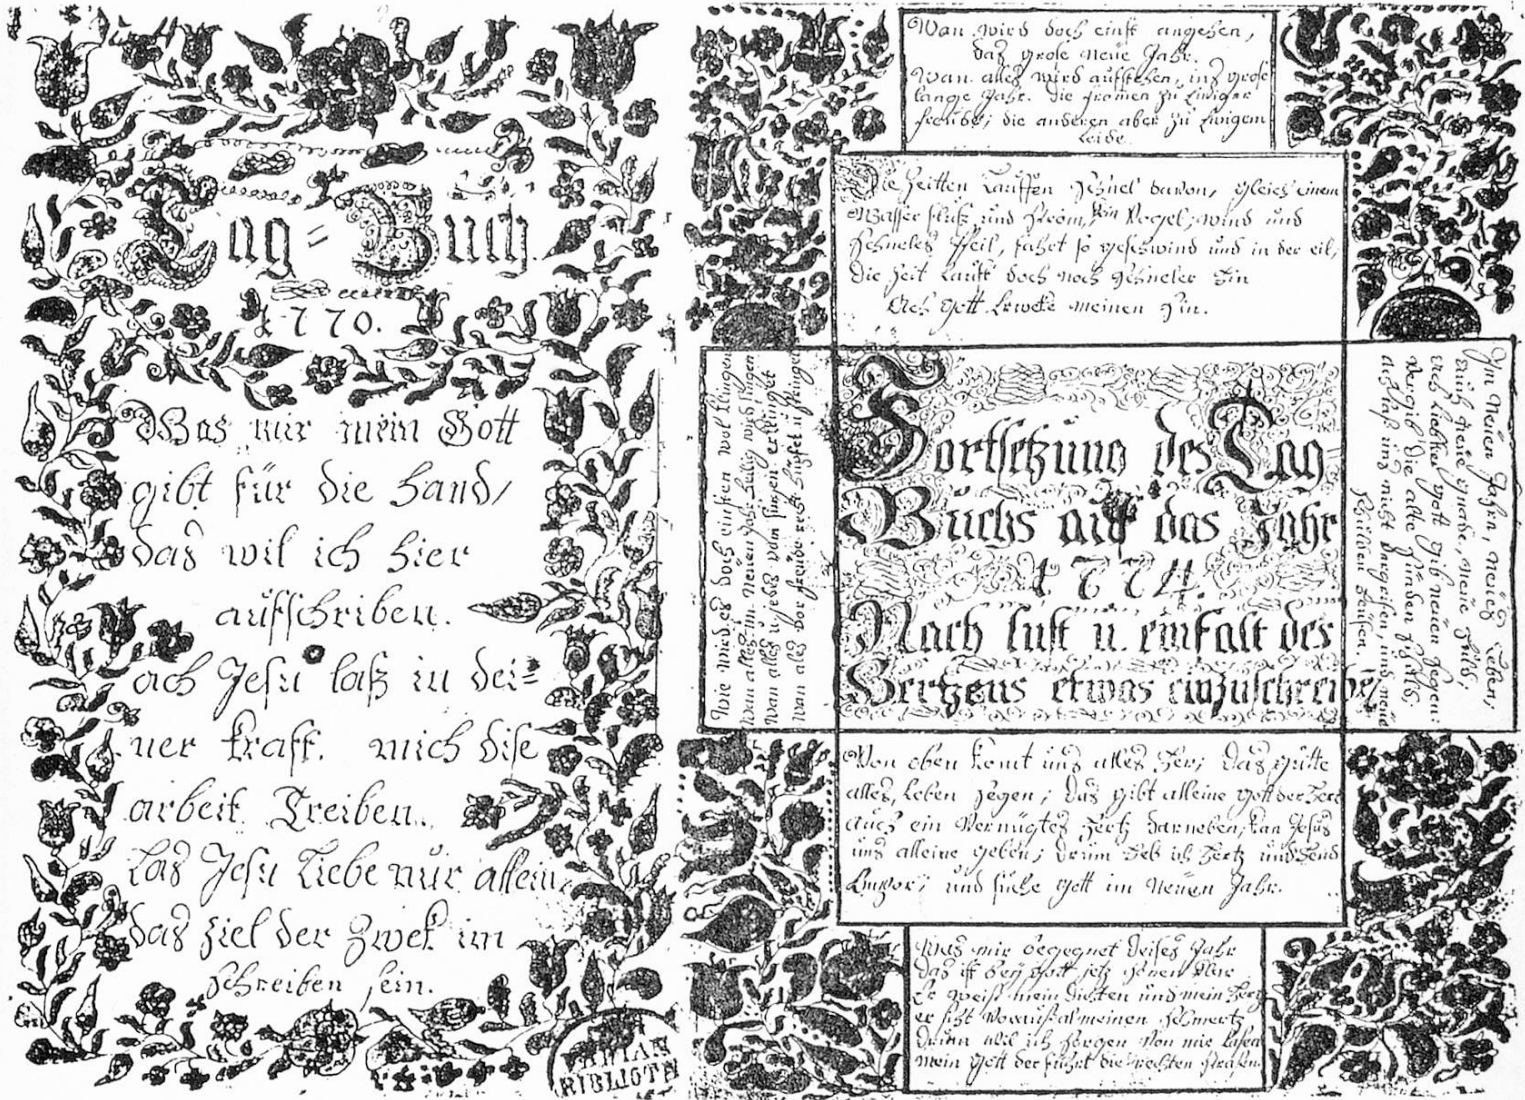 Tag = Buch.
1770.
Was mir mein Gott
gibt für die hand,
das wil ich hier
aufschriben.
ach Jesu laß in dei=
ner kraft mich dise
arbeit Treiben.
Las Jesu Liebe nur allein,
das ziel der Zwek im
schreiben sein.
BIBLIOTH
Wan wird doch einst angehen,
das grose neüe Jahr.
Wan alles wird aufstehen, ins grose
lange Jahr. die fromen zu Ewiger
freude; die anderen aber zu Ewigem
leide.
Die Zeitten Lauffen schnel davon, gleich einem
Wasser fluß und strom, kein Vogel, wind und
schneles Pfeil, fahrt so geschwind und in der eil,
die Zeit Lauft doch noch schneler hin
Ach Gott Erweke meinen Sin.
Wie wird es doch einsten wol klingen
Wan alles im Neüen das heilig wird singen
Wan alles u jedes vom singen erklinget
Wan ales vor freüde recht hüpfet u springet
Fortsetzung des Tag
Buchs auf das Jahr
1774.
Nach lust u. einfalt des
Hertzens etwas einzuschreiben
Im Neüen Jahr, Neües Leben,
Neüe gnade, Neüe hüld,
Ach liebster Gott gib neüen Segen:
Vergib die alte Sünden schuld,
und nicht vergehen, und neüe
Von oben komt uns alles her; das gutte
alles, leben segen; das gibt alleine Gott der Herr
auch ein vernügtes Hertz darneben, kan Jesus
uns alleine geben; drum heb ich Hertz und hend
Empor; und suche Gott im Neüen Jahr.
Was mir begegnet dieses Jahr
das ist bey Gott jetz schon klar
Er weiß mein dichten und mein Hertz
er siht voraus al meinen schmertz
drum wil ich sorgen von mir lasen
mein Gott der führt die rechten strasen